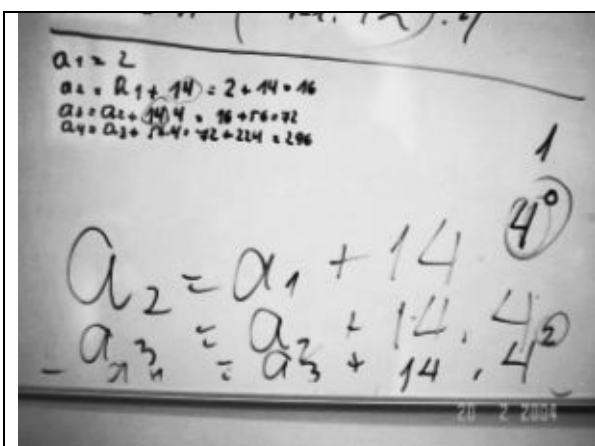 a1 = 2
a2 = a1 + 14 = 2 + 14 = 16
a3 = a2 + 14 4 = 16 + 56 = 72
a4 = a3 + 56 4 = 72 + 224 = 296
1
4⁰
a2 = a1 + 14
a3 = a2 + 14 . 4
= a3 + 14 . 4²
20 2 2004